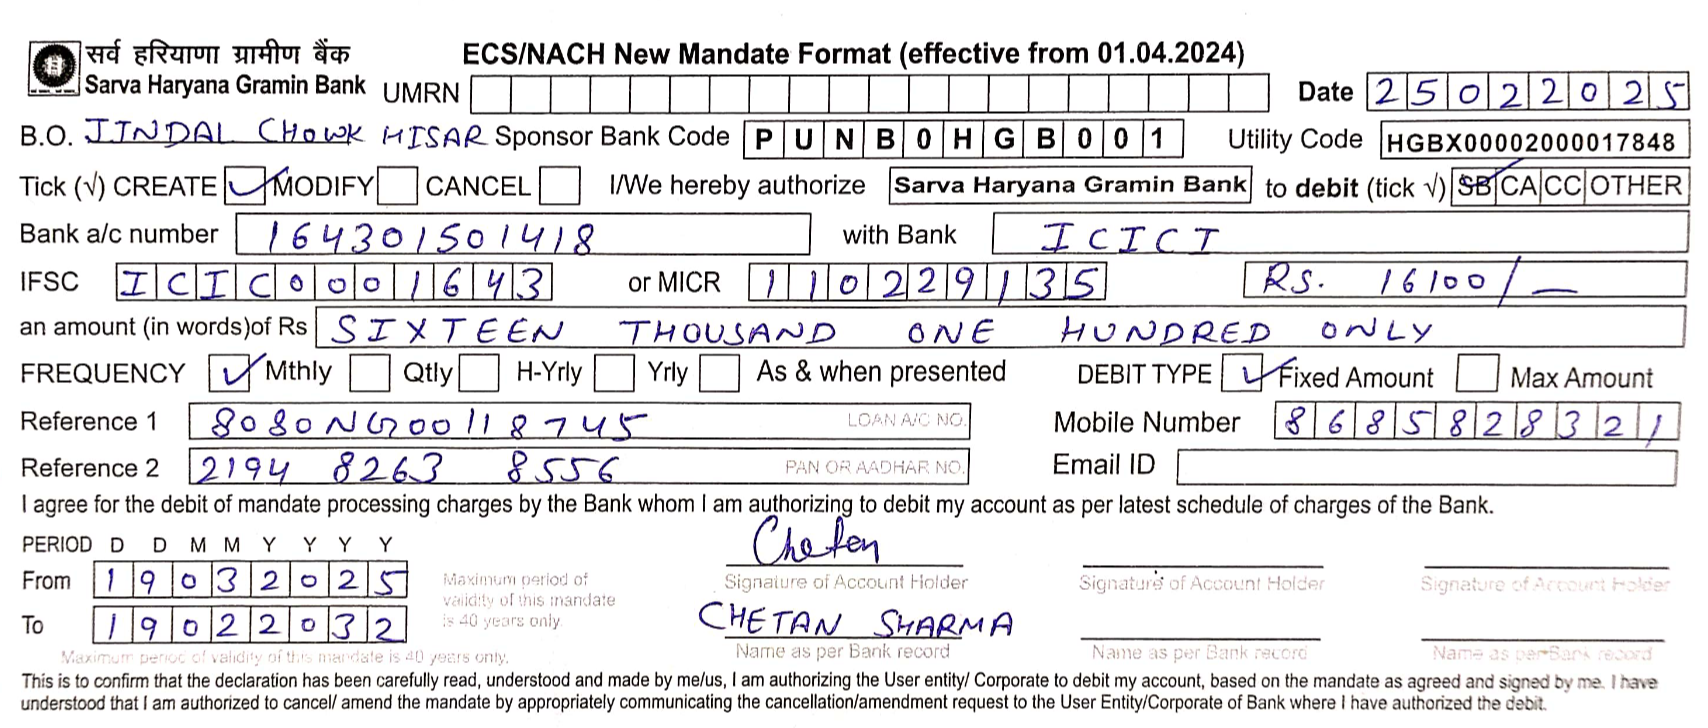 सर्व हरियाणा ग्रामीण बैंक
Sarva Haryana Gramin Bank
ECS/NACH New Mandate Format (effective from 01.04.2024)
UMRN Date 25022025
B.O. JINDAL CHOWK HISAR Sponsor Bank Code PUNB0HGB001 Utility Code HGBX00002000017848
Tick (√) CREATE ✓ MODIFY CANCEL I/We hereby authorize Sarva Haryana Gramin Bank to debit (tick √) SB CA CC OTHER
Bank a/c number 164301501418 with Bank ICICI
IFSC ICIC0001643 or MICR 110229135 RS. 16100/—
an amount (in words)of Rs SIXTEEN THOUSAND ONE HUNDRED ONLY
FREQUENCY ✓ Mthly Qtly H-Yrly Yrly As & when presented DEBIT TYPE ✓ Fixed Amount Max Amount
Reference 1 8080NG00118745 LOAN A/C NO. Mobile Number 8685828321
Reference 2 2194 8263 8556 PAN OR AADHAR NO. Email ID
I agree for the debit of mandate processing charges by the Bank whom I am authorizing to debit my account as per latest schedule of charges of the Bank.
PERIOD D D M M Y Y Y Y
From 19032025
To 19022032
Maximum period of
validity of this mandate
is 40 years only.
Maximum period of validity of this mandate is 40 years only.
Chetan
Signature of Account Holder Signature of Account Holder Signature of Account Holder
CHETAN SHARMA
Name as per Bank record Name as per Bank record Name as per Bank record
This is to confirm that the declaration has been carefully read, understood and made by me/us, I am authorizing the User entity/ Corporate to debit my account, based on the mandate as agreed and signed by me. I have
understood that I am authorized to cancel/ amend the mandate by appropriately communicating the cancellation/amendment request to the User Entity/Corporate of Bank where I have authorized the debit.